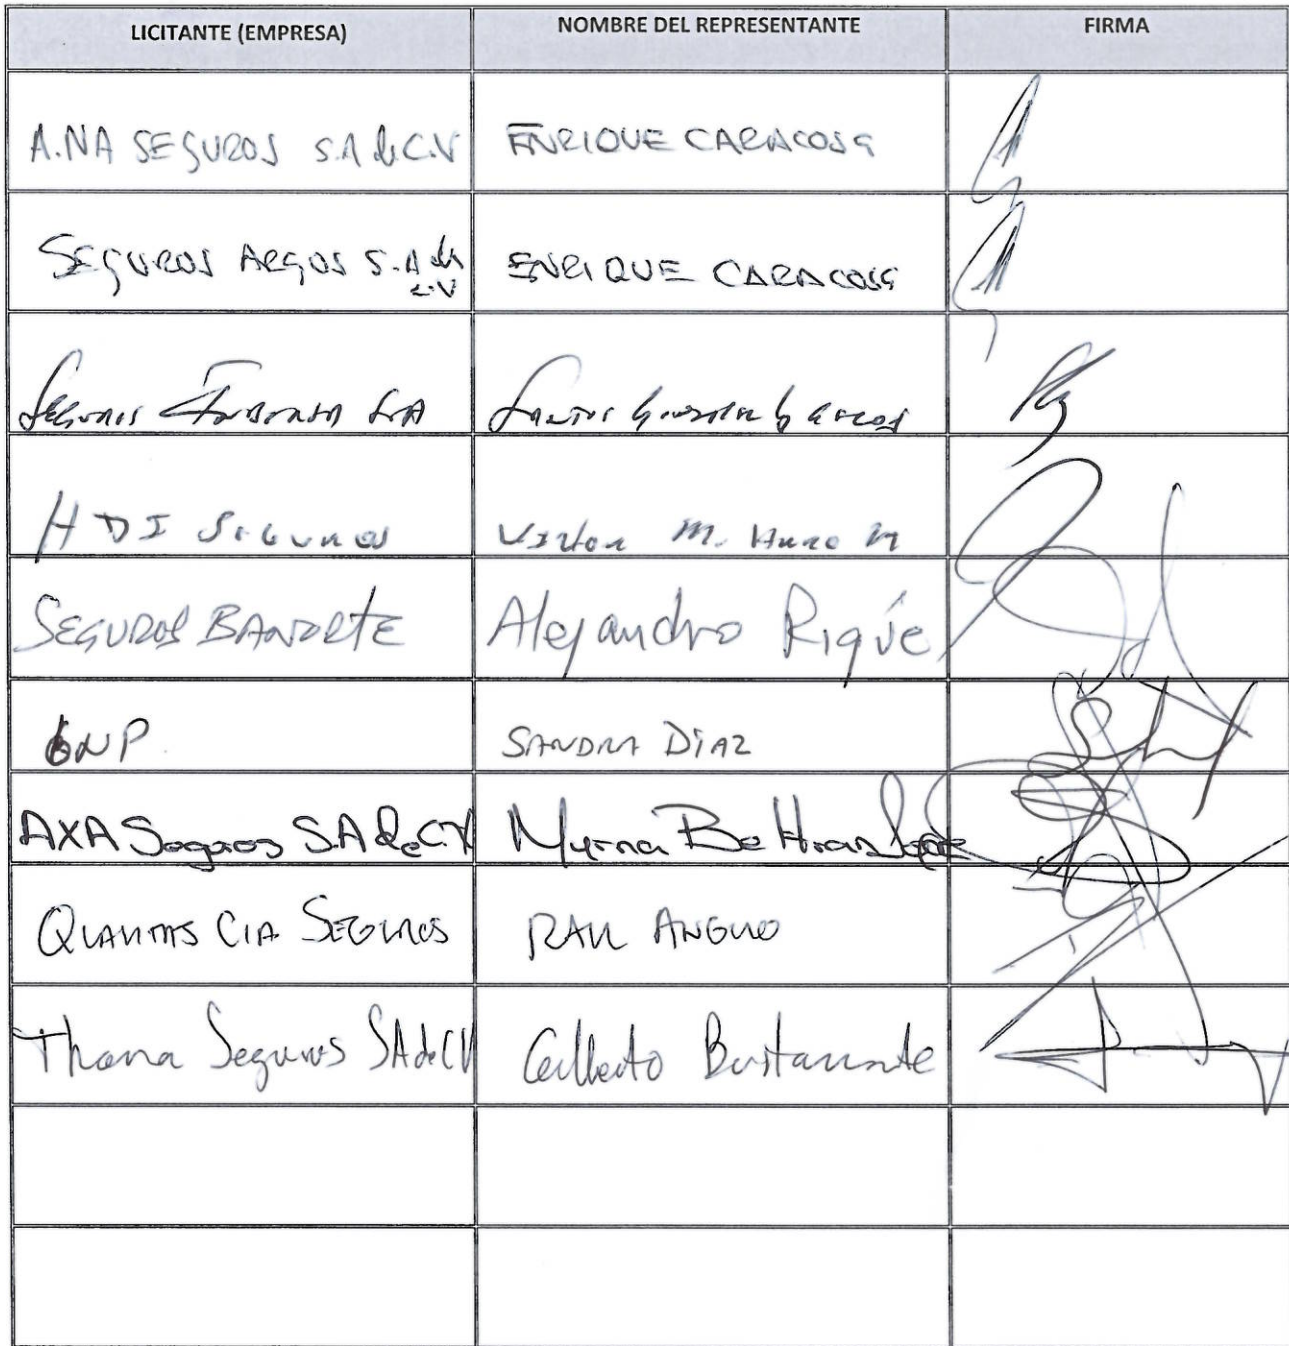 LICITANTE (EMPRESA) NOMBRE DEL REPRESENTANTE FIRMA
A.NA SEGUROS S.A de C.V ENRIQUE CARACOSA
SEGUROS ARGOS S.A de C.V ENRIQUE CARACOSA
Seguros S.A
HDI Seguros Victor M. Haro M
SEGUROS BANORTE Alejandro Rigúe
GNP. SANDRA DÍAZ
AXA Seguros S.A de C.V Myrna Beltran
QUALITAS CIA SEGUROS RAUL ANGULO
Thona Seguros SA de CV Gilberto Bustamante